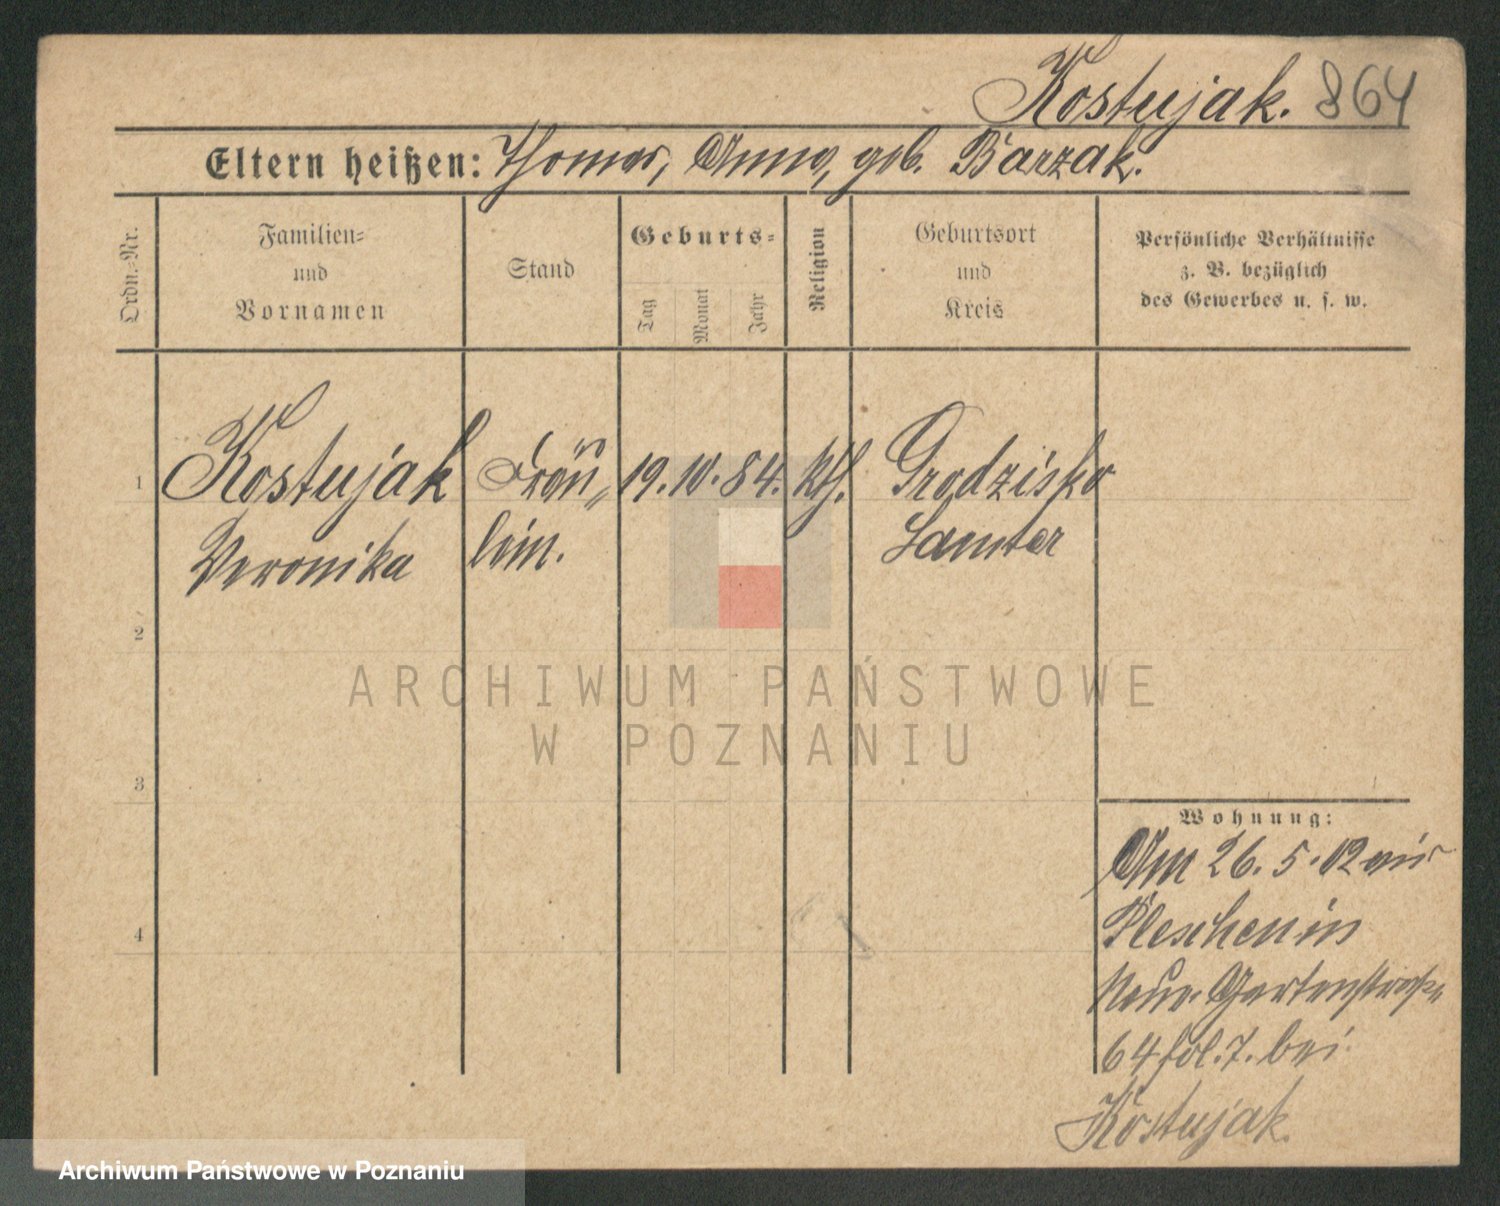 Kostujak. 864
Eltern heißen: Thomas, Anna, geb. Barzak.
Ordn.-Nr.
Familien-
und
Vornamen
Stand
Geburts-
Tag
Monat
Jahr
Religion
Geburtsort
und
Kreis
Persönliche Verhältnisse
z. B. bezüglich
des Gewerbes u. s. w.
1 Kostujak Fräu„ 19. 10. 84. kth. Grodzisko
Veronika lein. Samter
2
3
4
Wohnung:
Am 26. 5. 02 aus
Pleschen in
Neue Gartenstraße
64 fol. 7. bei
Kostujak.
ARCHIWUM PAŃSTWOWE
W POZNANIU
Archiwum Państwowe w Poznaniu